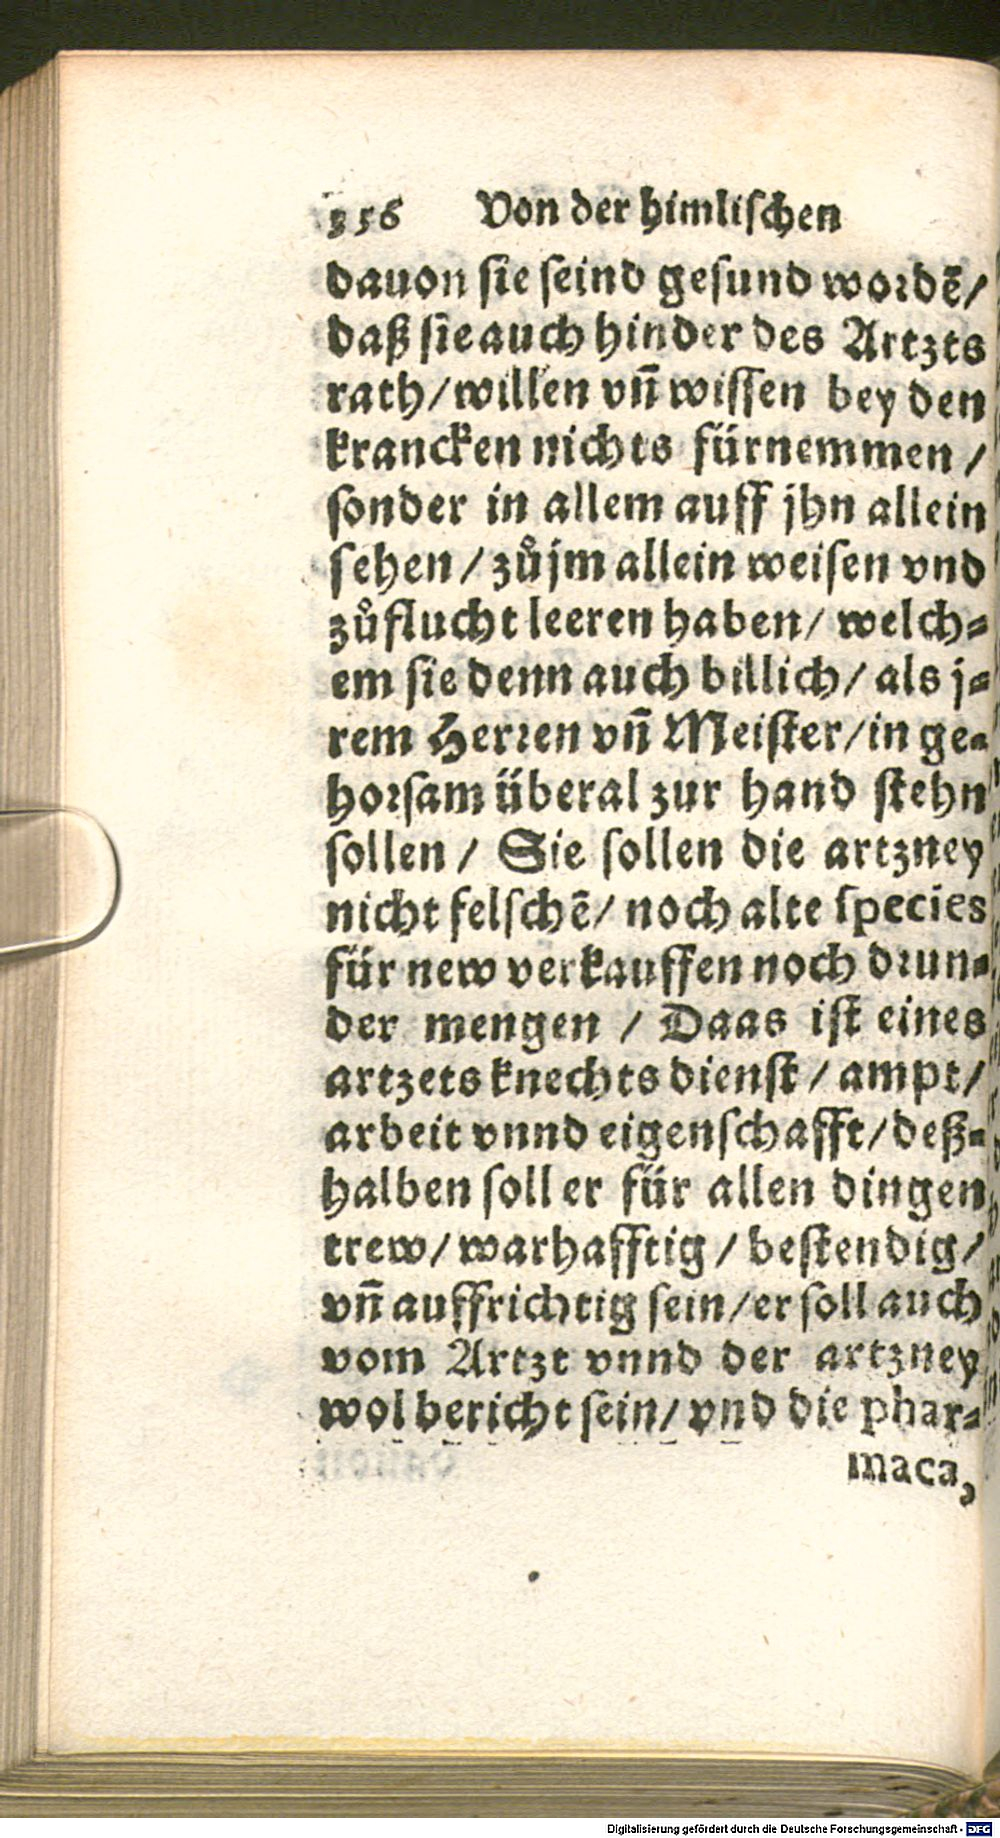 356 Von der himlischen
dauon sie seind gesund wordẽ/
daß sie auch hinder des Artzts
rath/willen vñ wissen bey den
krancken nichts fürnemmen /
sonder in allem auff jhn allein
sehen / zůjm allein weisen vnd
zůflucht leeren haben/ welch⸗
em sie denn auch billich/ als j⸗
rem Herren vñ Meister/in ge⸗
horsam überal zur hand stehn
sollen / Sie sollen die artzney
nicht felschẽ/ noch alte species
für new verkauffen noch drun⸗
der mengen / Daas ist eines
artzets knechts dienst / ampt/
arbeit vnnd eigenschafft/deß⸗
halben soll er für allen dingen
trew/ warhafftig / bestendig/
vñ auffrichtig sein/er soll auch
vom Artzt vnnd der artzney
wol bericht sein/ vnd die phar⸗
maca,
Digitalisierung gefördert durch die Deutsche Forschungsgemeinschaft - DFG